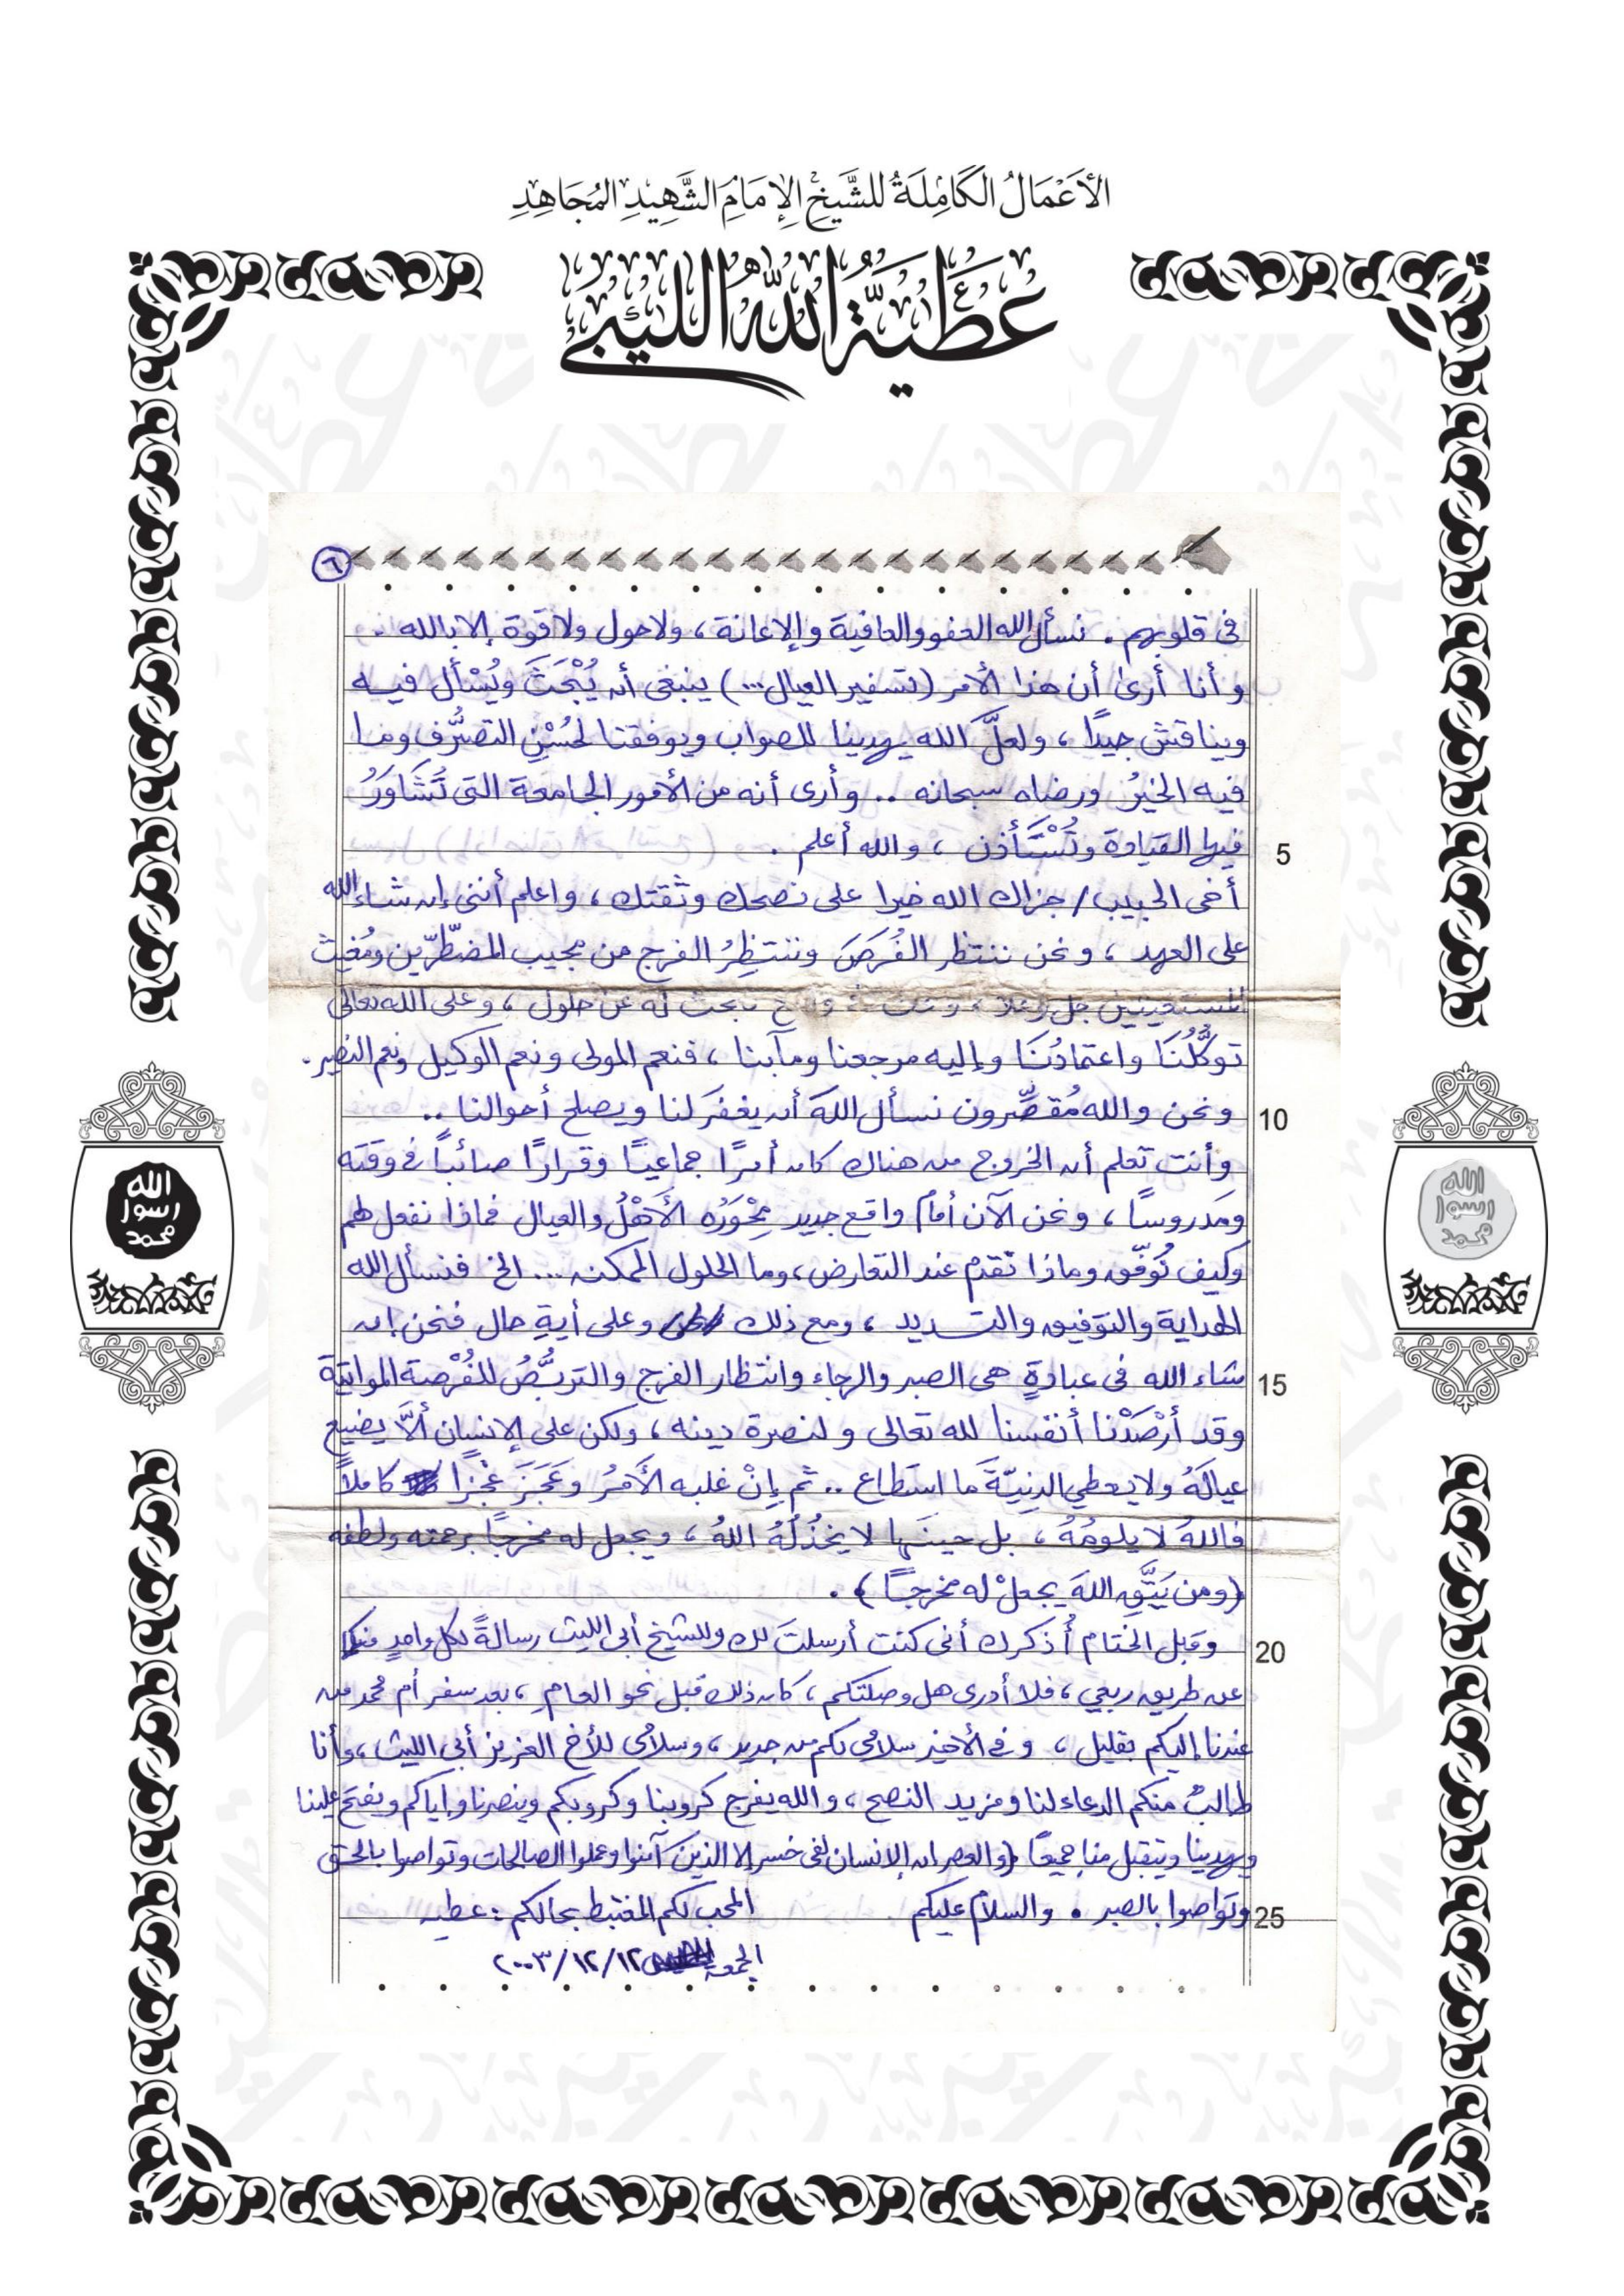 الأَعْمَالُ الكَامِلَةُ للشَّيخِ الإِمَامِ الشَّهِيدِ المُجَاهِدِ
عَطِيَّةُ اللهِ اللِّيبِي
٦
في قلوبهم . نسأل الله العفو والعافية والإعانة ، ولا حول ولا قوة إلا بالله .
وأنا أرى أن هذا الأمر (تسفير العيال ...) ينبغي أن يُبْحَثَ ويُسْأل فيه
ويناقش جيدًا ، ولعلَّ الله يهدينا للصواب ويوفقنا لحُسْنِ التصرُّف وما
فيه الخيرُ ورضاه سبحانه .. وأرى أنه من الأمور الجامعة التي تُشَاوَرُ
5
فيها القيادة وتُسْتَأذن ، والله أعلم .
أخي الحبيب / جزاك الله خيرا على نصحك وثقتك ، واعلم أنني إن شاء الله
على العهد ، ونحن ننتظر الفُرَصَ وننتظِرُ الفرج من مجيب المضطّرّين ومُغيث
المستغيثين جل وعلا ، نبحث له عن حلول ، وعلى الله تعالى
توكُّلُنَا واعتمادُنَا وإليه مرجعنا ومآبنا ، فنعم المولى ونعم الوكيل ونعم النصير .
10
ونحن والله مُقصِّرون نسأل اللهَ أن يغفرَ لنا ويصلح أحوالنا ..
وأنت تعلم أن الخروج من هناك كان أمرًا جماعيًا وقرارًا صائباً في وقته
ومَدروسًا ، ونحن الآن أمام واقع جديد مِحْوَرُه الأَهْلُ والعيال فماذا نفعل لهم
وكيف نُوَفّق وماذا نُقدّم عند التعارض ، وما الحلول الممكنه ... الخ فنسأل الله
الهداية والتوفيق والتسديد ، ومع ذلك وعلى أيةِ حال فنحن إن
15
شاء الله في عبادةٍ هي الصبر والرجاء وانتظار الفرج والتربُّصُ للفُرْصة المواتية
وقد أرْصَدْنا أنفسنا لله تعالى ولنصرة دينه ، ولكن على الإنسان ألاَّ يضيع
عيالَهُ ولا يعطي الدنيّةَ ما استطاع .. ثم إنْ غلبه الأَمْرُ وعَجَزَ عَجْزا كاملاً
فاللهُ لا يلومُهُ ، بل حينَها لا يَخْذُلُهُ اللهُ ، ويجعل له مخرجاً برحمته ولطفه
(ومن يَتَّقِ اللهَ يجعلْ له مخرجًا) .
20
وقبل الختام أُذكرك أنى كنت أرسلتَ لك وللشيخ أبي الليث رسالةً لكل واحدٍ منكما
عن طريق ربعي ، فلا أدرى هل وصلتكم ، كان ذلك قبل نحو العام ، بعد سفر أم محمد من
عندنا إليكم بقليل ، وفي الأخير سلامي لكم من جديد ، وسلامى للأخ العزيز أبي الليث ، وأنا
طالبٌ منكم الدعاء لنا ومزيد النصح ، والله يفرج كروبنا وكروبكم وينصرنا وإياكم ويفتح علينا
ويهدينا ويتقبل منا جميعًا (والعصر ان الإنسان لفى خسر إلا الذين آمنوا وعملوا الصالحات وتواصوا بالحق
25
وتواصوا بالصبر . والسلام عليكم المحب لكم المغتبط بحالكم : عطيه
الجمعة ٢٠٠٣/١٢/١٢
الله
رسول
محمد
الله
رسول
محمد